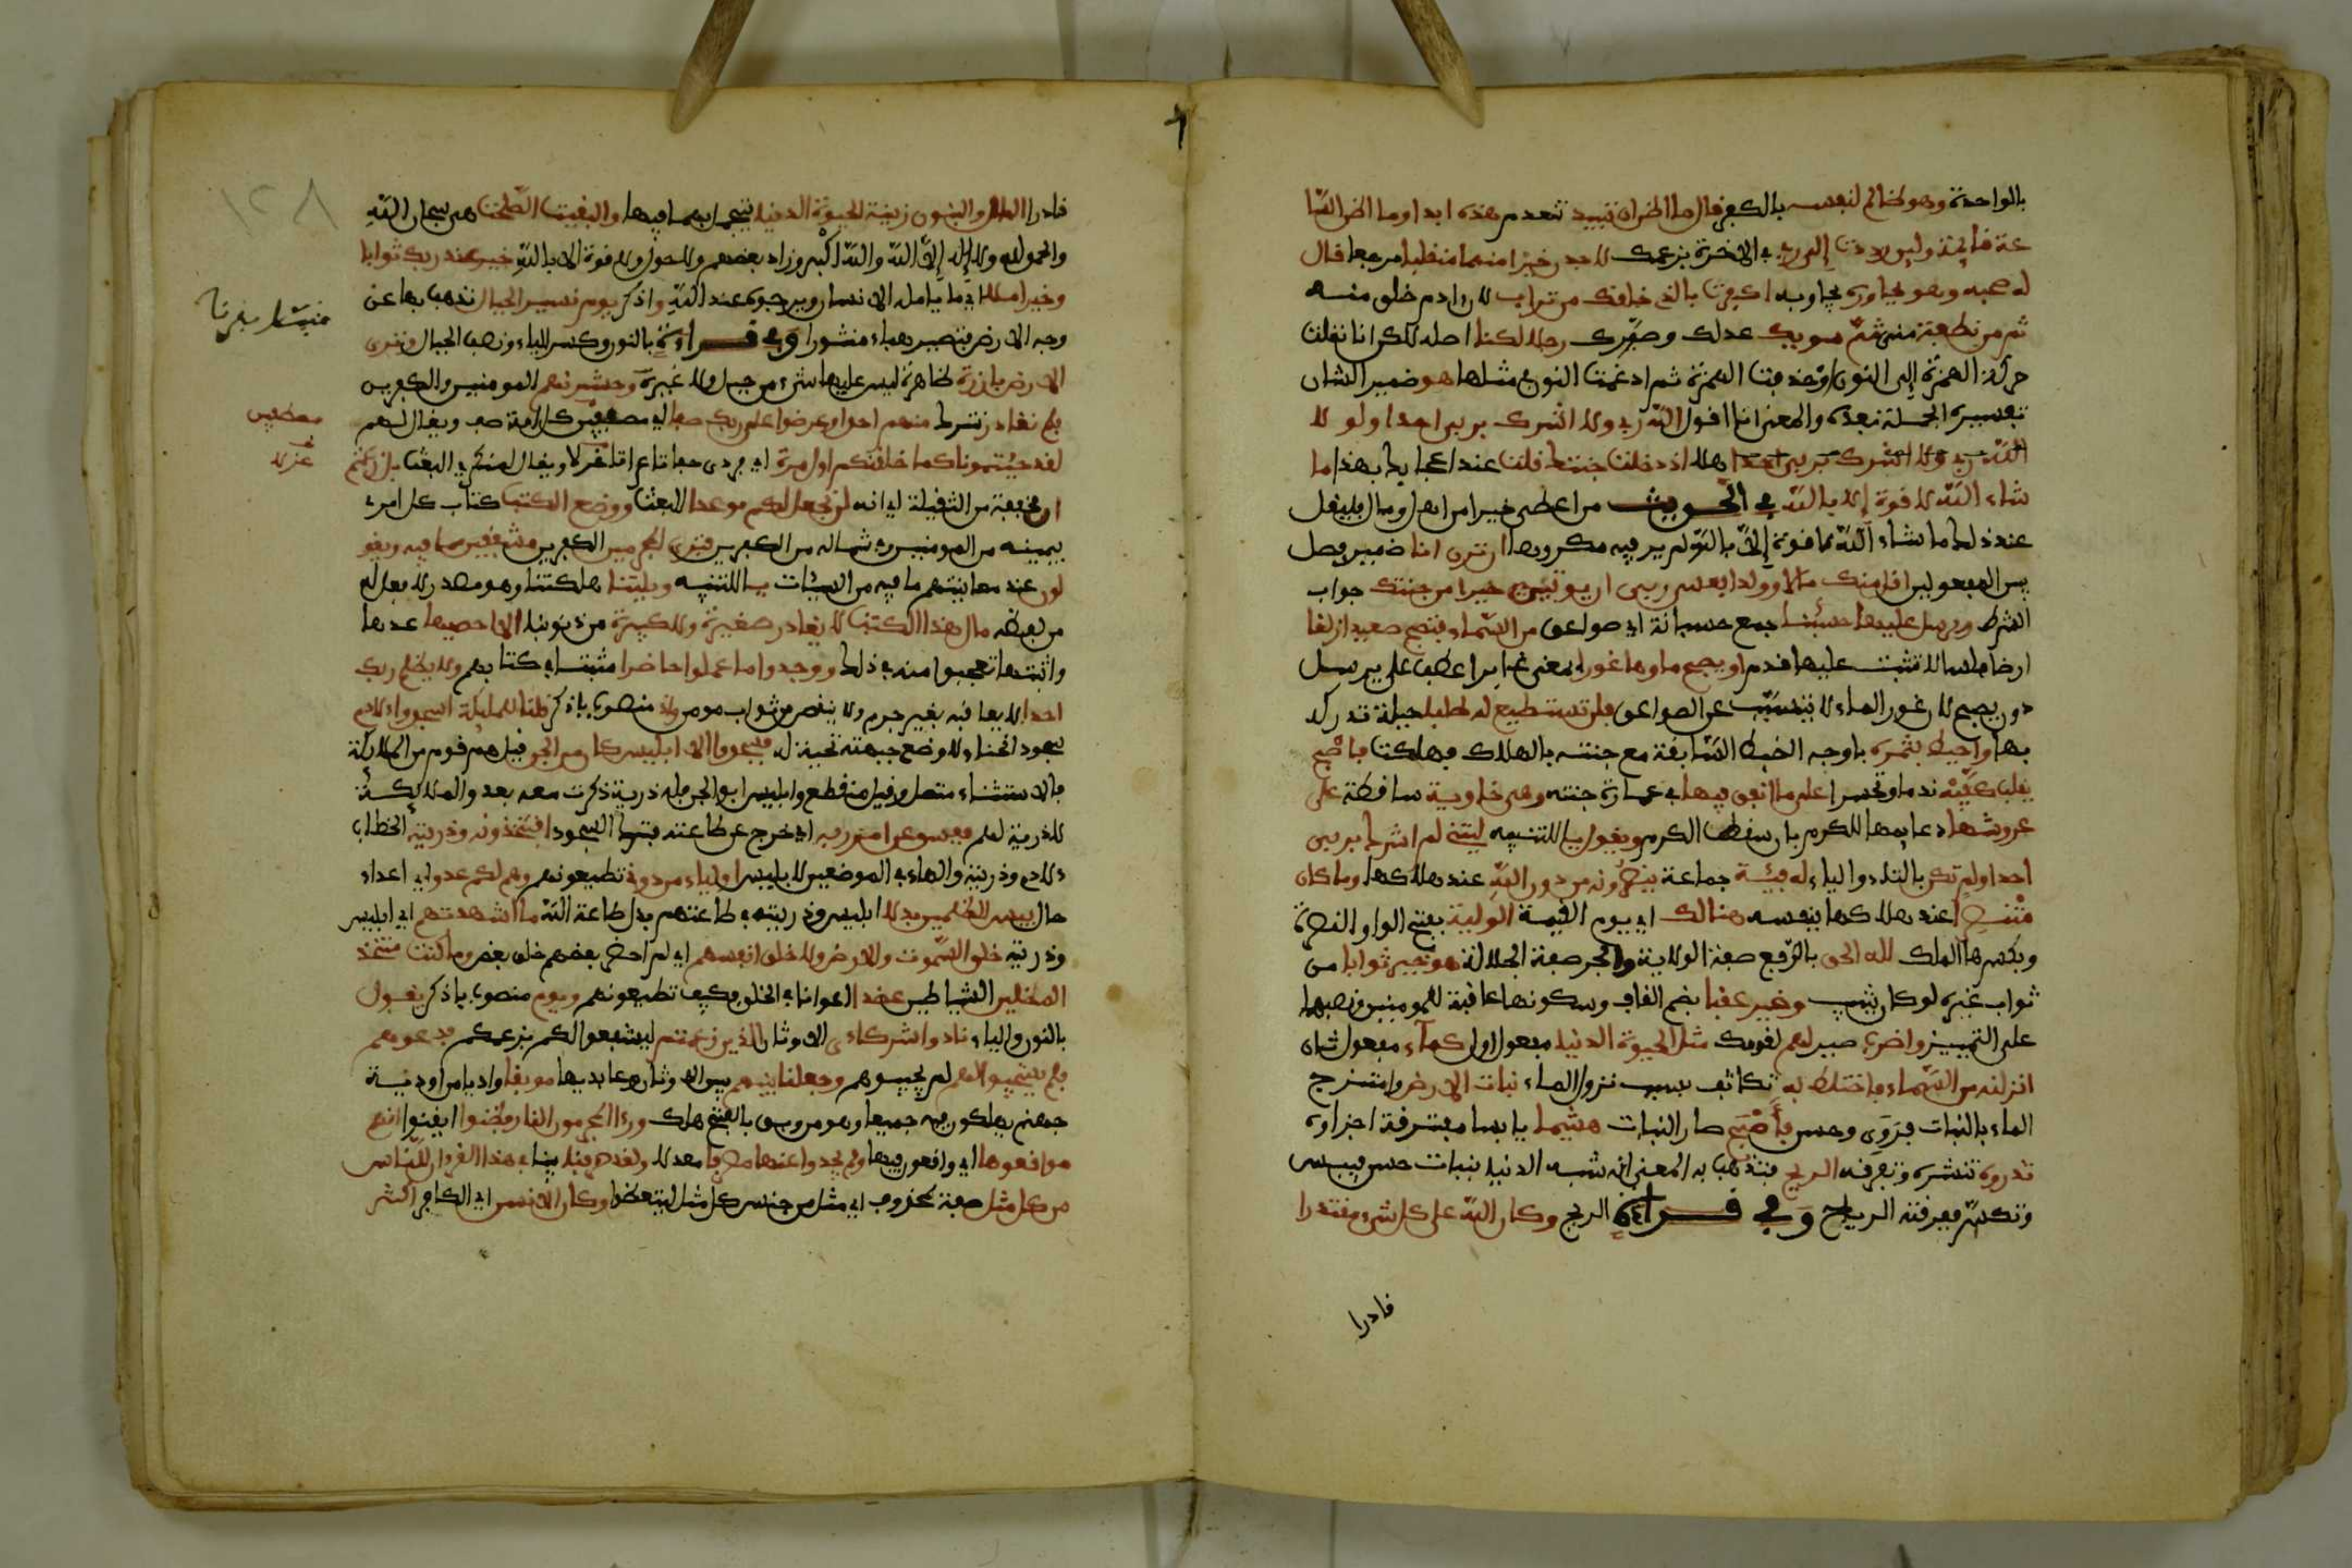 بالواحدة وهو ظالم لنفسه بالكفر قال ما اظن ان تبيد تنعدم هذه ابدا وما اظن السا
عة قائمة ولين رددت إلى ربي في الاخرة بزعمك لاجدن خيرا منهما منقلبا مرجعا قال
له صحبه وهو يحاوره يجاوبه اكفرت بالذي خلقك من تراب لان ادم خلق منه
ثم من نطفة مني ثمّ سويك عدلك وصيّرك رجلا لكنا اصله لكن انا نقلت
حركة الهمزة إلى النون وحذفت الهمزة ثم ادغمت النون في مثلها هو ضمير الشان
تفسيره الجملة بعده والمعنى انا اقول اللّه ربي ولا اشرك بربي احدا ولو لا
اللّه ربي ولا اشرك بربي احدا هلا اذ دخلت جنتك قلت عند اعجابك بهذا ما
شاء اللّه لا قوة إلا باللّه في الحديث من اعطي خيرا من اهل او مال فليقل
عند ذلك ما شاء اللّه لا قوة إلا باللّه لم ير فيه مكروها ان ترن انا ضمير فصل
بين المفعولين اقل منك مالا وولدا فعسى ربي ان يوتين خيرا من جنتك جواب
الشرط ويرسل عليها حسبنا جمع حسبانة اي صواعق من السّماء فتصبح صعيدا زلقا
ارضا ملساء لا تثبت عليها قدم او يصبح ماوها غورا بمعنى غايرا عطف على يرسل
دون يصبح لان غور الماء لا يتسبّب عن الصواعق فلن تستطيع له طلبا حيلة تدركه
بها واحيط بثمره باوجه الضبط السّابقة مع جنته بالهلاك فهلكت فاصبح
يقلب كفّيه ندما وتحسرا على ما انفق فيها في عمارة جنته وهي خاوية ساقطة على
عروشها دعايمها للكرم بان سقطت الكرم ويقول يا للتنبيه ليتني لم اشرك بربي
احدا ولم تكن بالتاء والياء له فيئة جماعة ينصرونه من دون اللّه عند هلاكها وما كان
منتصرا عند هلاكها بنفسه هنالك اي يوم القيمة الولية بفتح الواو النصرة
وبكسرها الملك لله الحق بالرّفع صفة الولاية والجر صفة الجلالة هو خير ثوابا من
ثواب غيره لو كان يثيب وخير عقبا بضم القاف وسكونها عاقبة للمومنين ونصبها
على التمييز واضرب صير لهم لقومك مثل الحيوة الدنيا مفعول اول كماء مفعول ثان
انزلنه من السّماء فاختلط به تكاثف بسبب نزول الماء نبات الارض وامتزج
الماء بالنبات فروي وحسن فأصبح صار النبات هشيما يابسا متفرقة اجزاوه
تذروه تنشره وتفرقه الريح فتذهب به المعنى انه شبه الدنيا بنبات حسن فيبس
وتكسّر ففرقته الرياح وفي قراءة الريح وكان اللّه على كل شيء مقتدرا
قادرا
قادرا المال والبنون زينة الحيوة الدنيا يتجمل بهما فيها والبقيت الصّلحت هي سبحان اللّه
والحمد لله ولا إله إلاّ اللّه واللّه اكبر وزاد بعضهم ولا حول ولا قوة الا باللّه خير عند ربك ثوابا
وخير املا اي ما يامله الانسان ويرجوه عند اللّه واذكر يوم نسير الجبال نذهب بها عن
وجه الارض فتصير هباء منثورا وفي قراءة بالنون وكسر الياء ونصب الجبال وترى
الارض بارزة ظاهرة ليس عليها شيء من جبل ولا غيره وحشرنهم المومنين والكفرين
فلم نغادر نترك منهم احدا وعرضوا على ربك صفا اي مصطفين كل امة صف ويقال لهم
لقد جيتمونا كما خلقنكم اول مرة اي فرادى حفاة عراة غرلا ويقال لمنكري البعث بل زعمتم
ان مخففة من الثقيلة اي انه لن نجعل لكم موعدا للبعث ووضع الكتب كتاب كل امرء
بيمينه من المومنين وشماله من الكفرين فترى المجرمين الكفرين مشفقين مما فيه ويقو
لون عند معاينتهم ما فيه من السيئات يا للتنبيه ويلتنا هلكتنا وهو مصدر لا فعل له
من لفظه مال هذا الكتب لا يغادر صغيرة ولا كبيرة من ذنوبنا الا احصيها عدها
واثبتها تعجبوا منه في ذلك ووجدوا ما عملوا حاضرا مثبتا في كتابهم ولا يظلم ربك
احدا لا يعاقبه بغير جرم ولا ينقص من ثواب مومن واذ منصوب باذكر قلنا للمليكة اسجدوا لادم
سجود انحناء لا وضع جبهة تحية له فسجدوا الا ابليس كان من الجن قيل هم قوم من الملائكة
فالاستثناء متصل وقيل منقطع وابليس ابو الجن فله ذرية ذكرت معه بعد والملائكة
لا ذرية لهم ففسق عن امر ربه اي خرج عن طاعته بترك السجود افتتخذونه وذريته الخطاب
لادم وذريته والهاء في الموضعين لابليس اولياء من دوني تطيعونهم وهم لكم عدو اي اعداء
حال بيس للظلمين بدلا ابليس وذريته في طاعتهم بدل طاعة اللّه ما اشهدتهم اي ابليس
وذريته خلق السّموت والارض ولا خلق انفسهم اي لم احضر بعضهم خلق بعض وما كنت متخذ
المضلين الشياطين عضدا اعوانا في الخلق فكيف تطيعونهم ويوم منصوب باذكر يقول
بالنون والياء نادوا شركاءي الاوثان الذين زعمتم ليشفعوا لكم بزعمكم فدعوهم
فلم يستجيبوا لهم لم يجيبوهم وجعلنا بينهم بين الاوثان وعابديها موبقا واديا من اودية
جهنم يهلكون فيه جميعا وهو من وبق بالفتح هلك وراى المجرمون النار فظنوا ايقنوا انهم
مواقعوها اي واقعون فيها ولم يجدوا عنها مصرفا معدلا ولقد صرفنا بينا في هذا القران للنّاس
من كل مثل صفة لمحذوف اي مثل من جنس كل مثل ليتعظوا وكان الانسن اي الكافر اكثر
مصطفين
غرلا
١٢٨